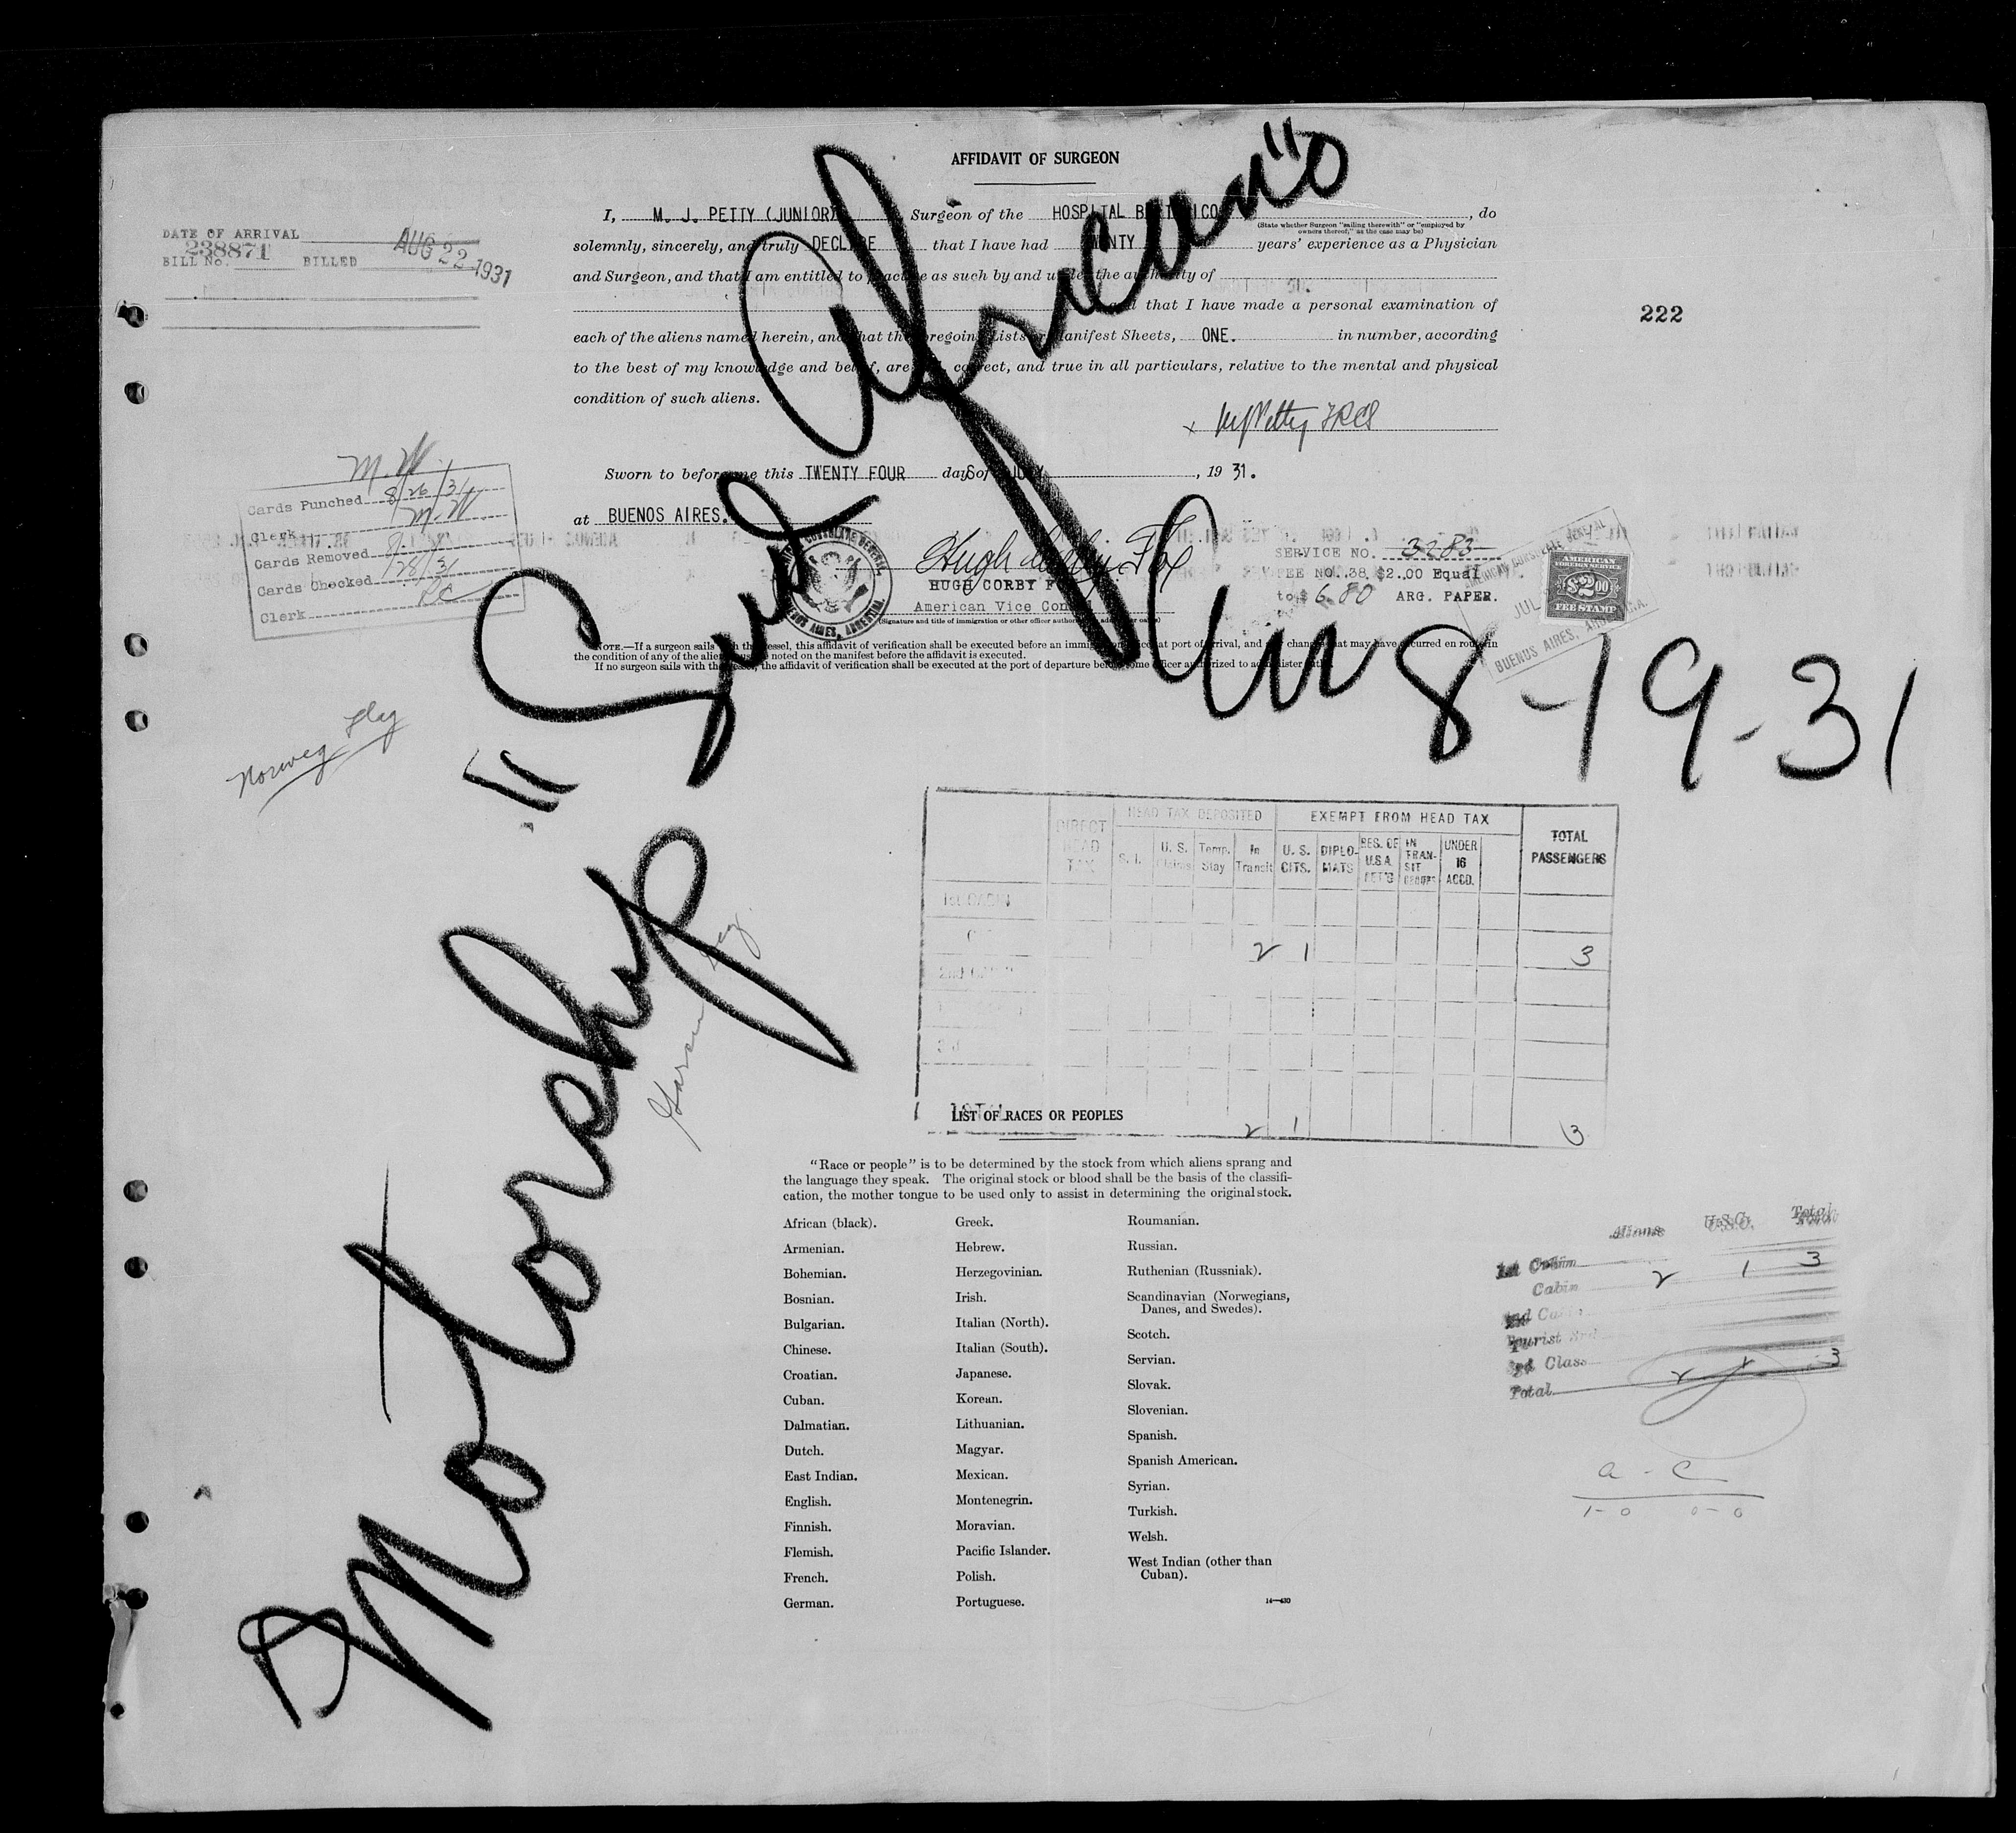 AFFIDAVIT OF SURGEON
I, M. J. PETTY (JUNIOR) Surgeon of the HOSPITAL BRITANICO, do
(State whether Surgeon "sailing therewith" or "employed by owners thereof," as the case may be)
solemnly, sincerely, and truly DECLARE that I have had TWENTY years' experience as a Physician
and Surgeon, and that I am entitled to practice as such by and under the authority of
and that I have made a personal examination of
each of the aliens named herein, and that the foregoing Lists or Manifest Sheets, ONE. in number, according
to the best of my knowledge and belief, are full, correct, and true in all particulars, relative to the mental and physical
condition of such aliens.
x MJ Petty FRCS
Sworn to before me this TWENTY FOUR day of JULY, 19 31.
at BUENOS AIRES.
DATE OF ARRIVAL AUG 22 1931
BILL No. 238871 BILLED
222
M.W.
Cards Punched 8/26/31
Clerk M.W.
Cards Removed
Cards Checked 8/28/31
Clerk RC
Hugh Corby Fox
HUGH CORBY FOX
American Vice Consul
(Signature and title of immigration or other officer authorized to administer oaths)
SERVICE NO. 3283
FEE NO. 38 $2.00 Equal
to $ 6.80 ARG. PAPER.
AMERICAN CONSULATE GENERAL
JUL
BUENOS AIRES, ARGENTINA.
AMERICAN
FOREIGN SERVICE
$2.00
FEE STAMP
NOTE.—If a surgeon sails with the vessel, this affidavit of verification shall be executed before an immigration officer at port of arrival, and any changes that may have occurred en route in
the condition of any of the aliens must be noted on the manifest before the affidavit is executed.
If no surgeon sails with the vessel, the affidavit of verification shall be executed at the port of departure before some officer authorized to administer oaths.
Norweg Flag
Motorship "Sud Africano"
8-19-31
DIRECT HEAD TAX
HEAD TAX DEPOSITED
EXEMPT FROM HEAD TAX
TOTAL PASSENGERS
S.I. U.S. Claims Temp. Stay In Transit U.S. CITS. DIPLO- MATS RES. OF U.S.A. RET'G IN TRAN- SIT GROUPS UNDER 16 ACCD.
1st CABIN
2 1 3
2nd CABIN
3rd
TOTAL
2 1 3
LIST OF RACES OR PEOPLES
"Race or people" is to be determined by the stock from which aliens sprang and
the language they speak. The original stock or blood shall be the basis of the classifi-
cation, the mother tongue to be used only to assist in determining the original stock.
African (black).
Armenian.
Bohemian.
Bosnian.
Bulgarian.
Chinese.
Croatian.
Cuban.
Dalmatian.
Dutch.
East Indian.
English.
Finnish.
Flemish.
French.
German.
Greek.
Hebrew.
Herzegovinian.
Irish.
Italian (North).
Italian (South).
Japanese.
Korean.
Lithuanian.
Magyar.
Mexican.
Montenegrin.
Moravian.
Pacific Islander.
Polish.
Portuguese.
Roumanian.
Russian.
Ruthenian (Russniak).
Scandinavian (Norwegians,
Danes, and Swedes).
Scotch.
Servian.
Slovak.
Slovenian.
Spanish.
Spanish American.
Syrian.
Turkish.
Welsh.
West Indian (other than
Cuban).
14—430
Aliens U.S.C. Total
1st Cabin
Cabin 2 1 3
2nd Cabin
Tourist 3rd
3rd Class
Total 2 1 3
a - c
1-0 0-0